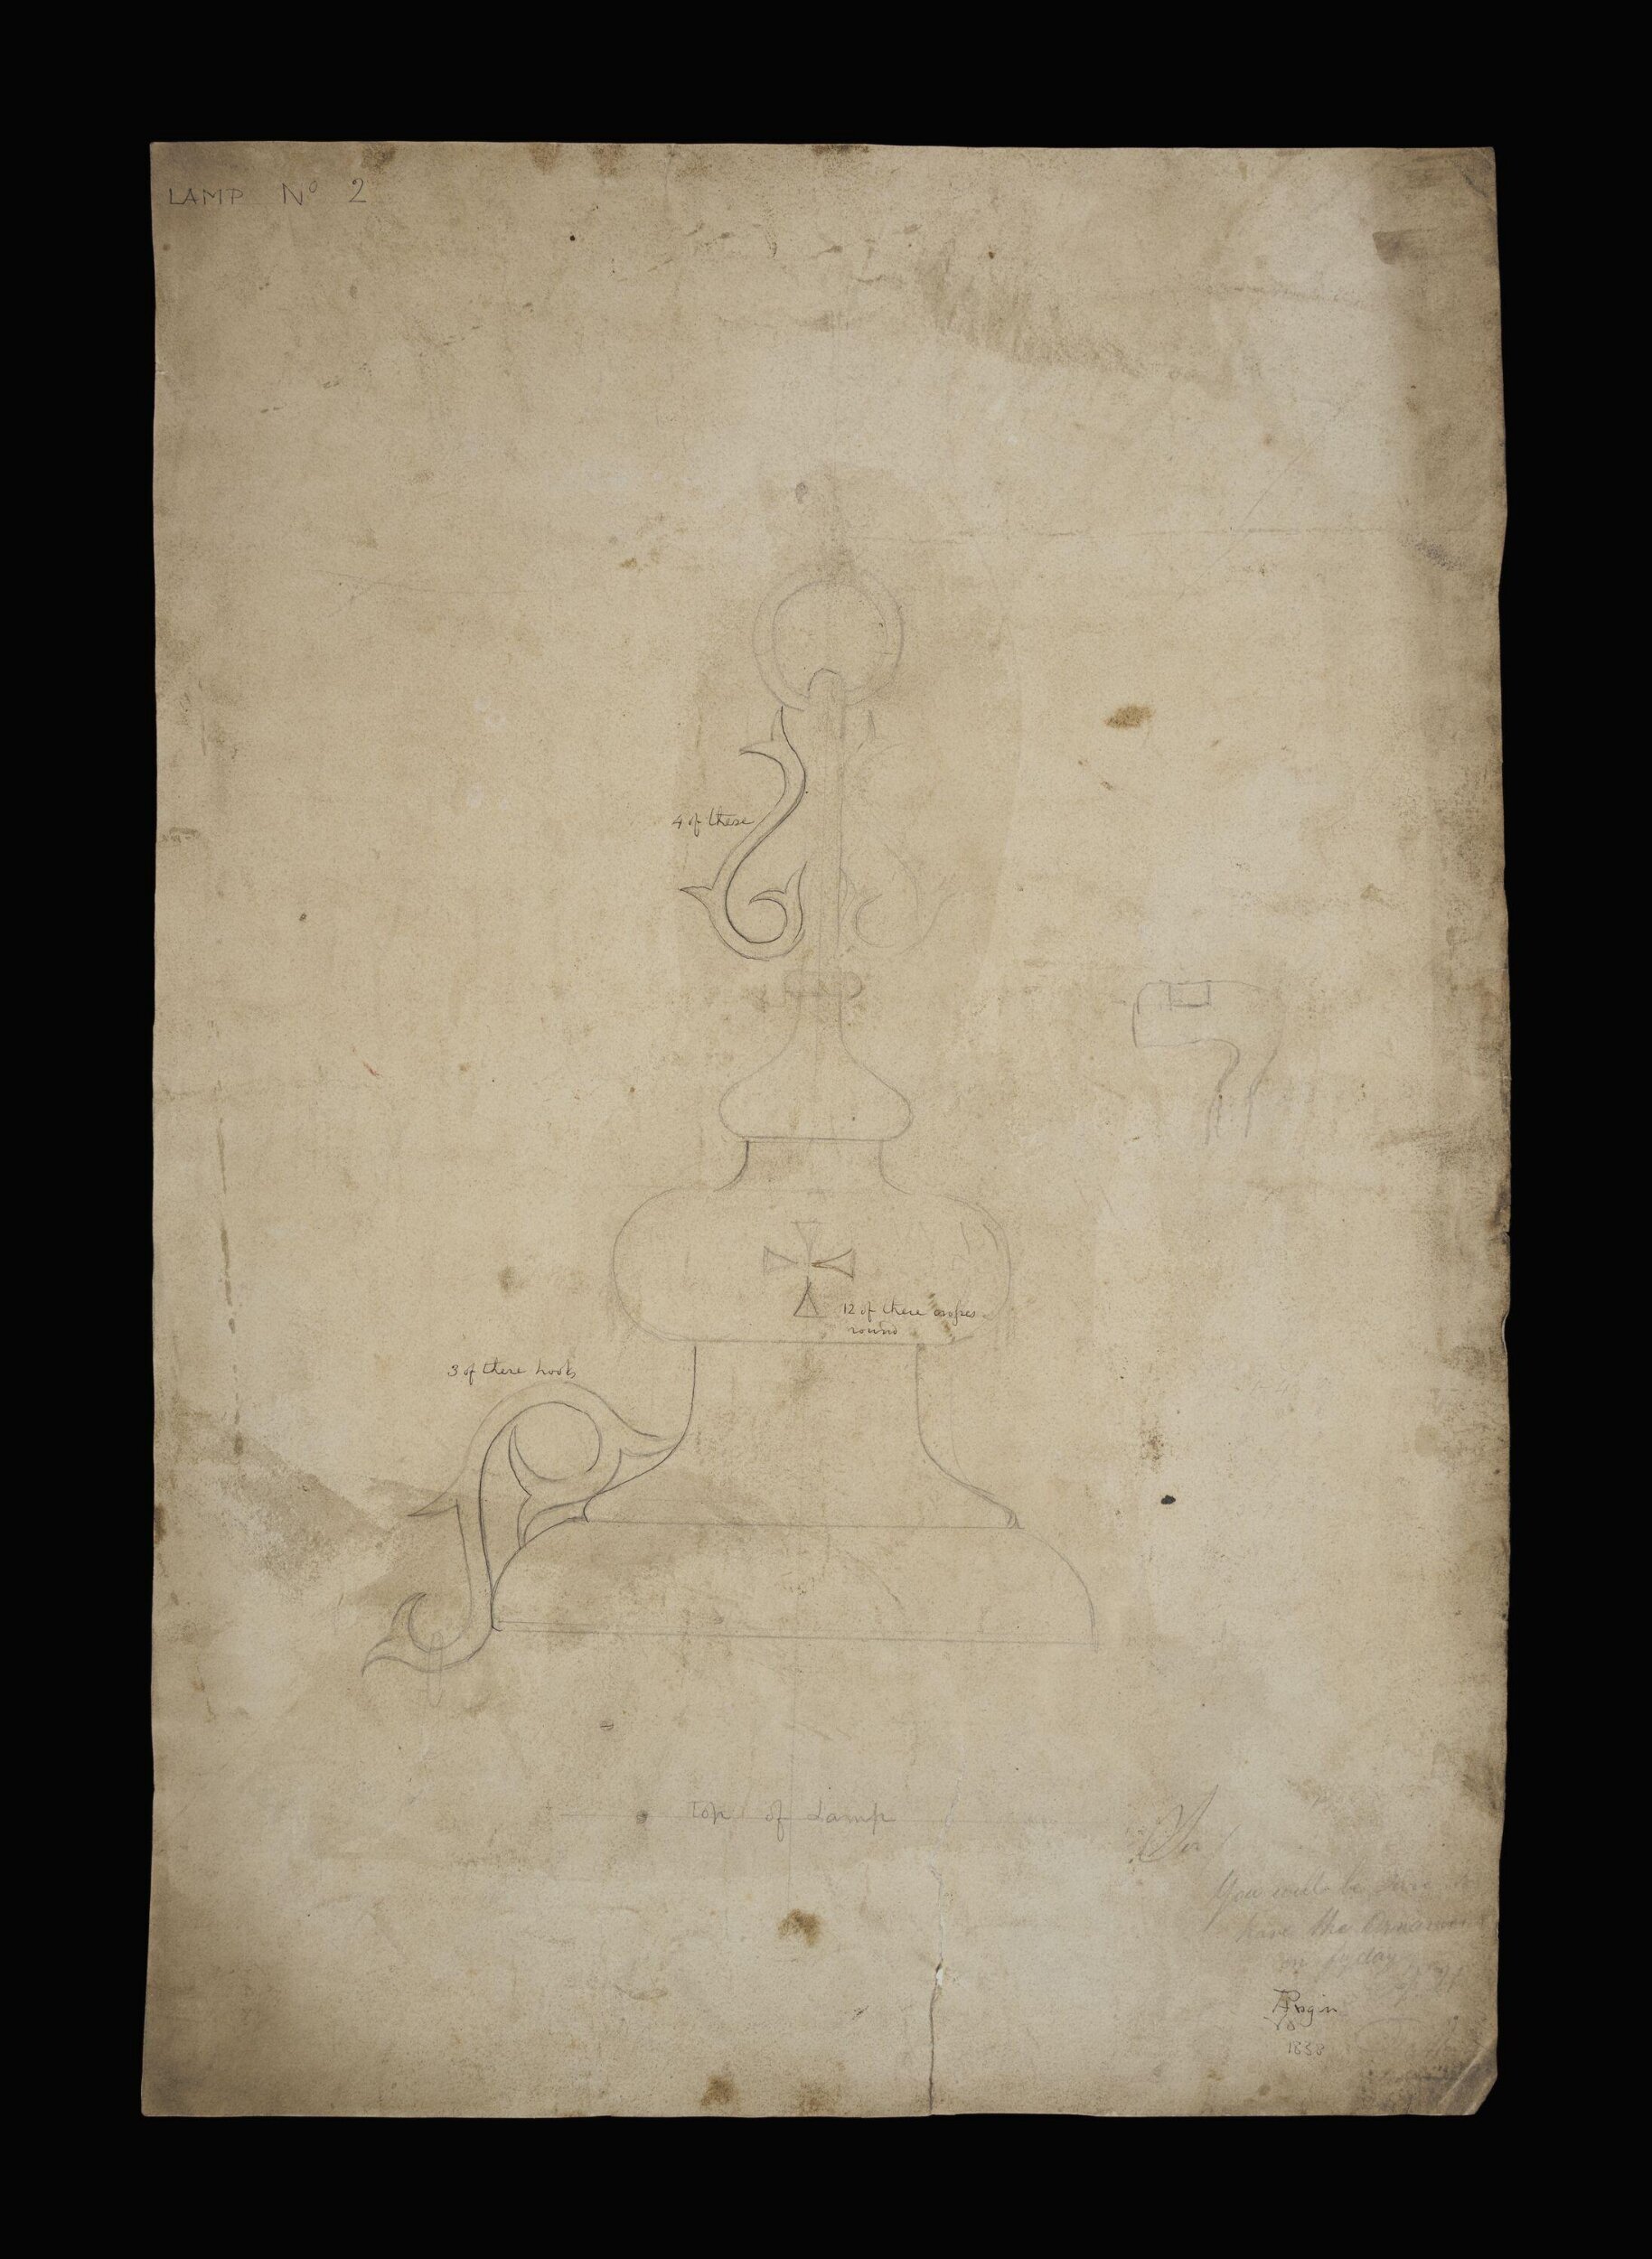 LAMP No 2
4 of these
12 of these crosses
round
3 of these hooks
Top of Lamp
Sir
You will be sure to
have the Ornament
on fryday
APugin
1838